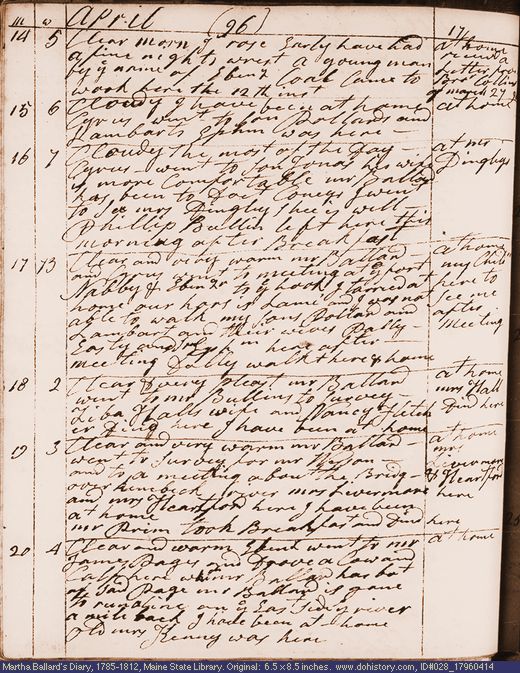 m w April (96) 17
14 5 Clear morn yd rose Early have had at home
a fine nights wrest a young man
by ye name of Ebenr Coal Came to
work here the 12th inst of march 27
15 6 Cloudy I have been at home at home
Cyrus went to son Pollards and
Lambarts Ephm was here
16 7 Cloudy the most of the day at mr
Cyrus went to son Jonas his wife Dinglys
is more Comfortable mr Ballard
has been to Doct Conys I went
to see mrs Dingley Shee is well
Phillip Bullin left here this
morning after Breakfast
17 Clear and very warm mr Ballard at home
and Cyrus went to meeting at ye port my Child
Nabby & Ebenr to ye hook I tarried at here to
home our hors is lame and I was not see me
able to walk my sons Pollard and after
Lambart and their wives Dolly meeting
meeting Dolly walk there & home
18 2 Clear & very pleast mr Ballard at home
went to mr Bullins to survey mrs Hall
Ziba Halls wife and Dancy Fletch Dind here
er Dined here I have been at home
19 3 Clear and very warm mr Ballard at home
went to Survey for mr Wesson mrs
and to a meeting about the Bridg Livermore
over Kenebeck river mrs Livermore & Hearsford
and mrs Hearsford here I have been here
at home
mr Prim took Breakfas and Dind here
20 4 Clear and warm Ebenr went to mr at home
James Pages and Drove a Cow and
Calf here whin mr Ballard has bot
of sd Page mr Ballard is gone
to runaline on ye East side river
a mile back I have been at home
old mrs Kenny was here
Martha Ballard's Diary, 1785-1812, Maine State Library. Original: 6.5 x 8.5 inches. www.dohistory.com, ID#028_17960414